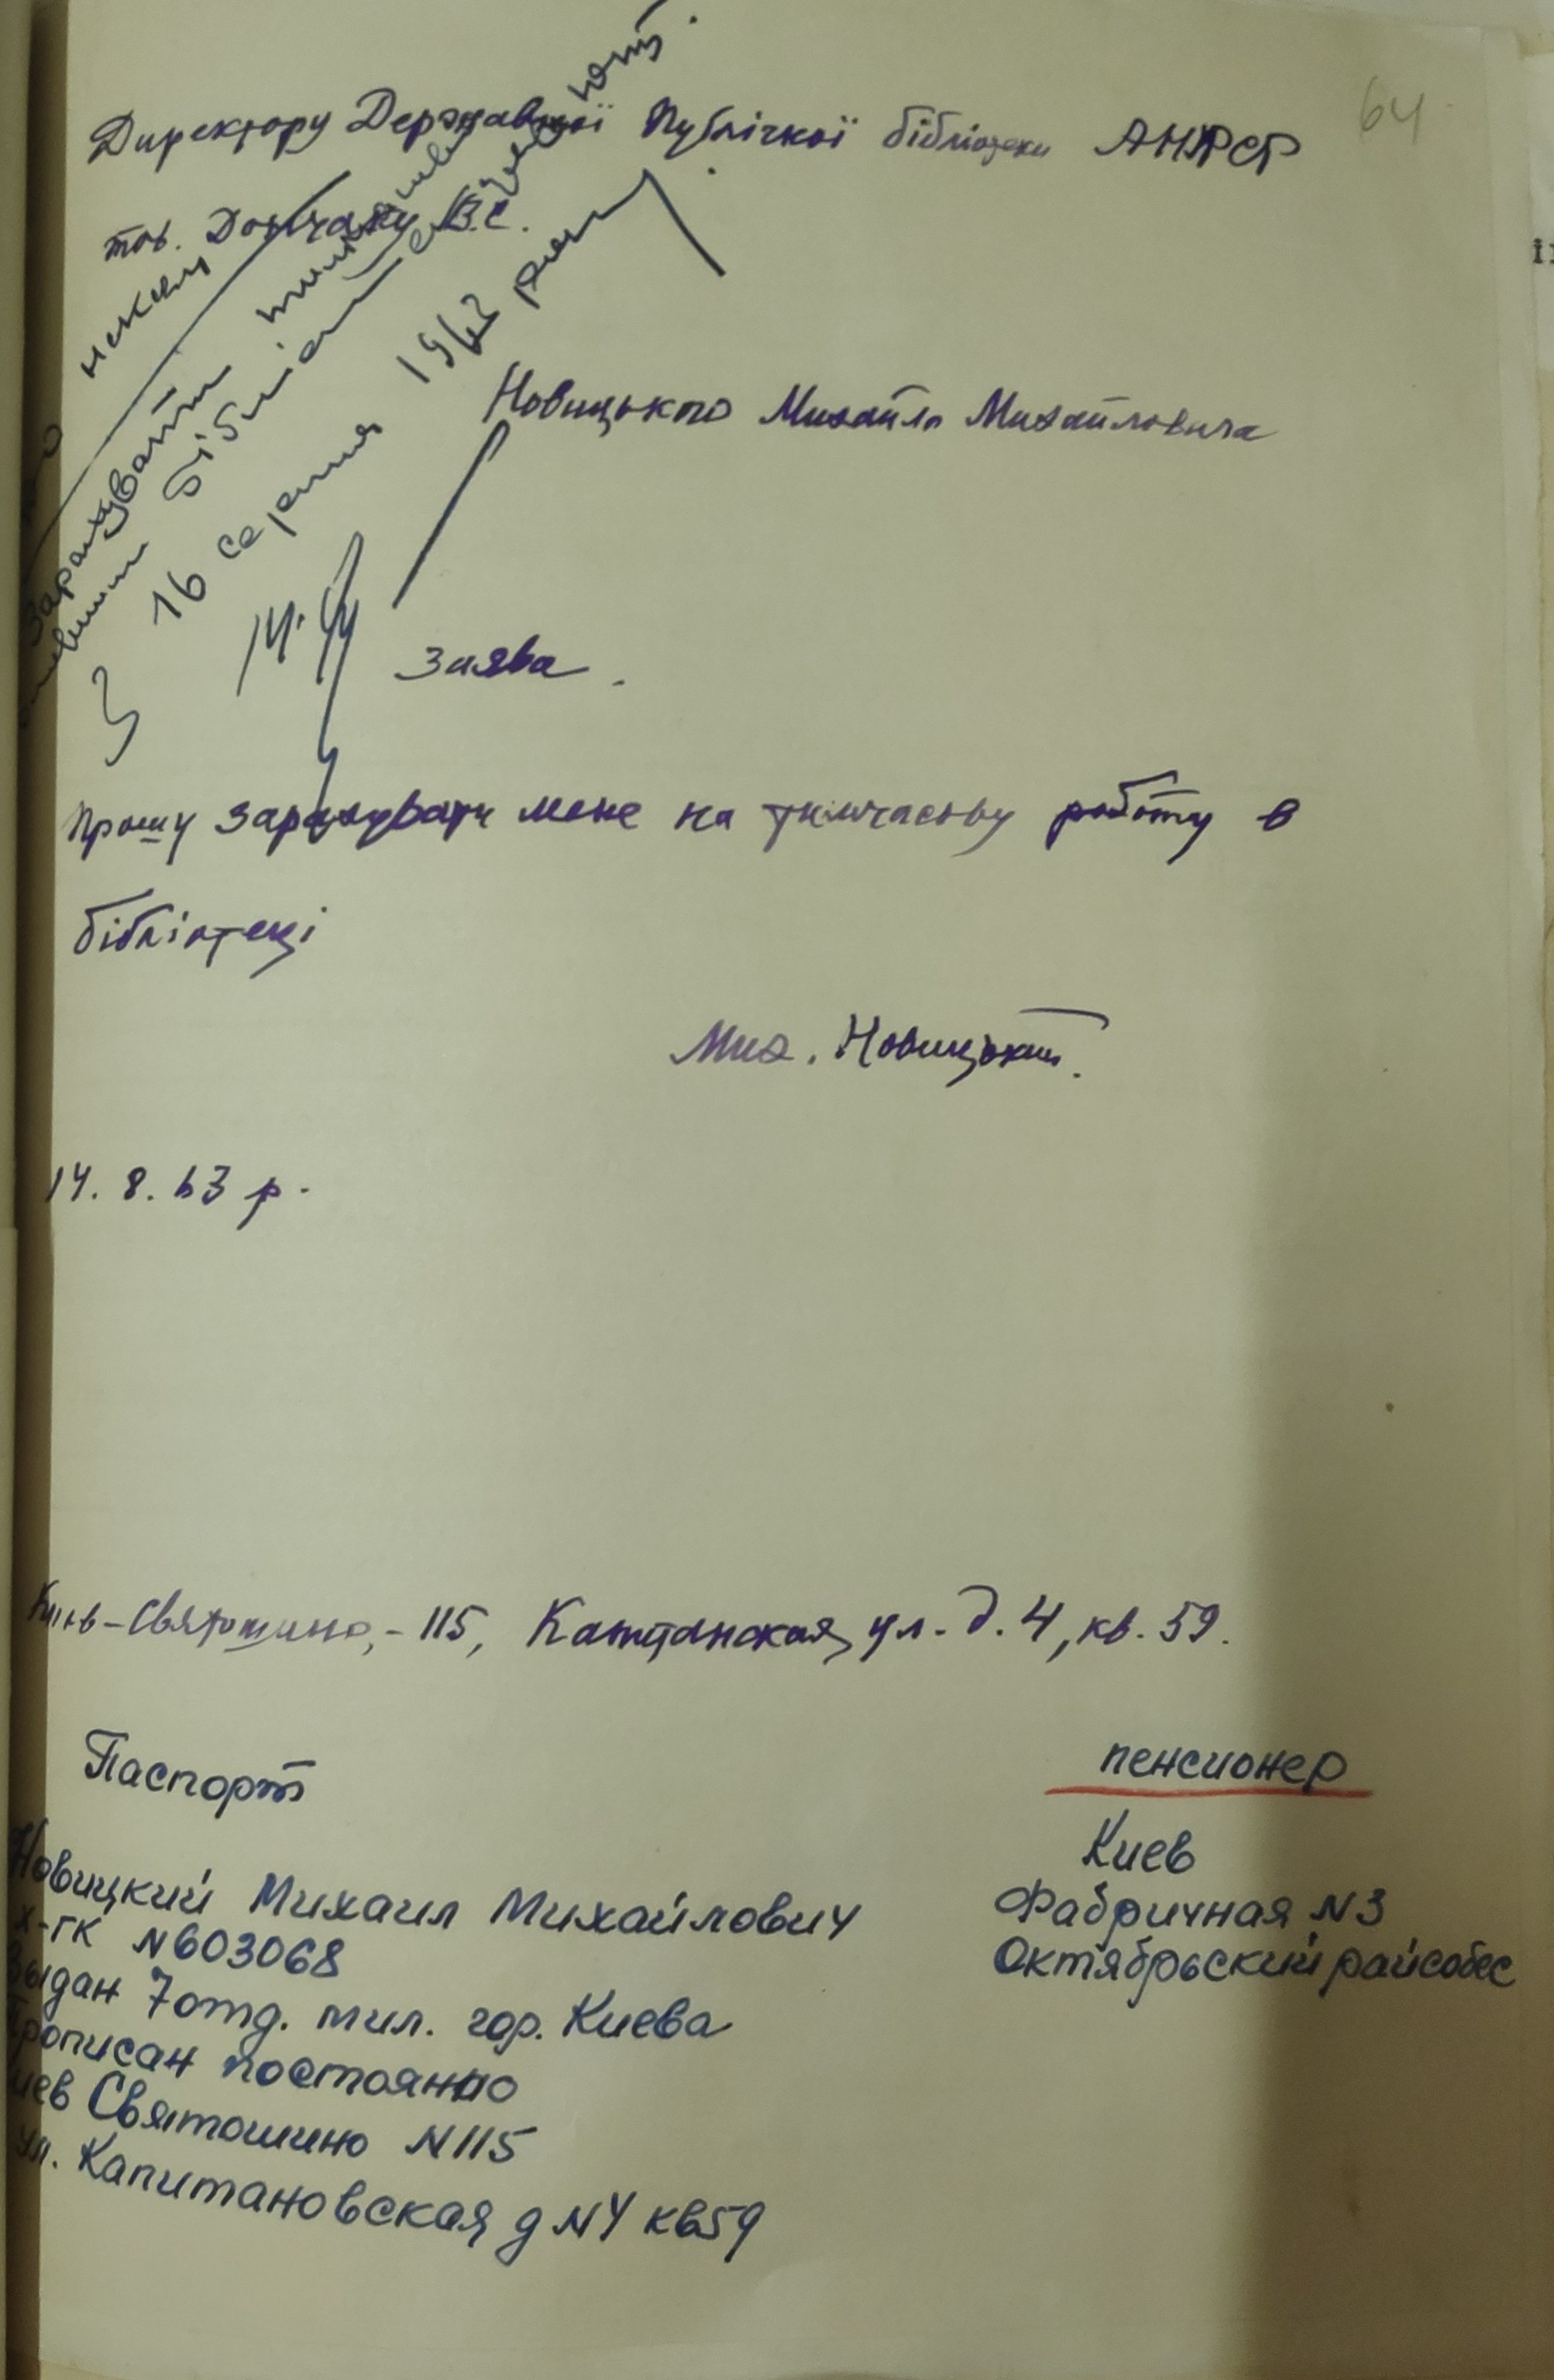 64
Директору Державної Публічної бібліотеки АНУРСР
тов. Дончаку В.С.
наказу
Зарахувати тимчасово
бібліотекарем
з 16 серпня 1963 року
Новицького Михайла Михайловича
Заява.
Прошу зарахувати мене на тимчасову роботу в
бібліотеці
Мих. Новицький.
14. 8. 63 р.
Київ-Святошино, - 115, ул. д. 4, кв. 59.
Паспорт
Новицкий Михаил Михайлович
X-ГК N603068
Выдан 7 отд. мил. гор. Киева
Прописан постоянно
Киев Святошино N115
ул. Капитановская д N4 кв59
пенсионер
Киев
Фабричная N3
Октябрьский райсобес